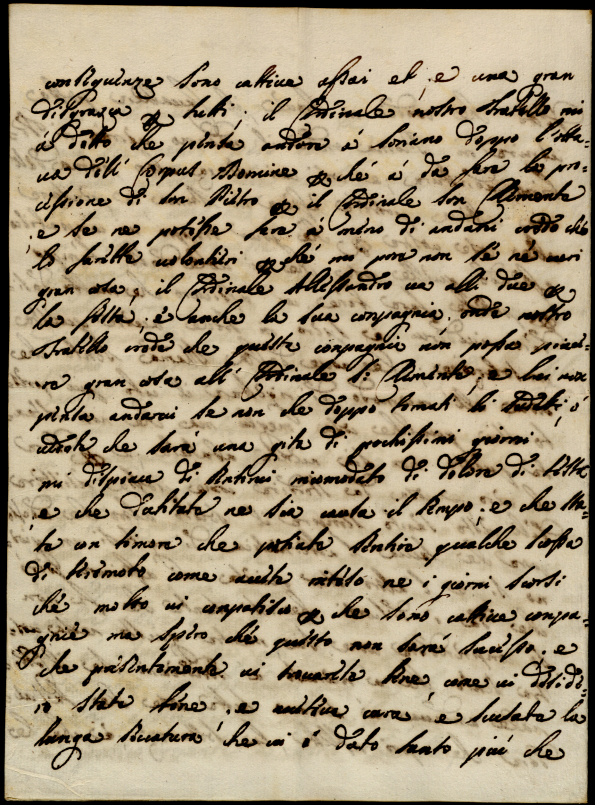 consiguenze sono cattive assai et, e una gran
disgrazia p tutti, il Cardinale nostro fratello mi
a ditto che pensa andare á Soriano doppo l'otta=
va dell' Corpus Domine p ché á da fare la pro=
cissione di San Pietro p il Cardinale San Clemente
e se ne potesse fare a meno di andarci credo che
lo farebbe volontieri p ché mi pare non se ne curi
gran cosa, il Cardinale Allessandro va alli due p
la festa, é anche la sua compagnia, onde nostro
fratello crede che queste compagnie non possa piaci=
re gran cosa all' Cardinale S: Clemente, e lui non
pensa andarci se non che doppo tornati li
che sará una gita di pochissimi giorni
mi dispiace di sentirvi incomodato di dolore di testa
e che dubitate ne sia causa il tempo, e che sta=
te con timore che potiate sentire qualche scossa
di teremoto come avete inteso ne i giorni scorsi
ché molto vi compatisco p che sono cattive compa=
gnie ma spero ché questo non sará sucesso, e
che presentemente vi trovarete bene come vi deside=
ro state bene, e scusate la
lunga sicatura che vi ó dato tanto piú che